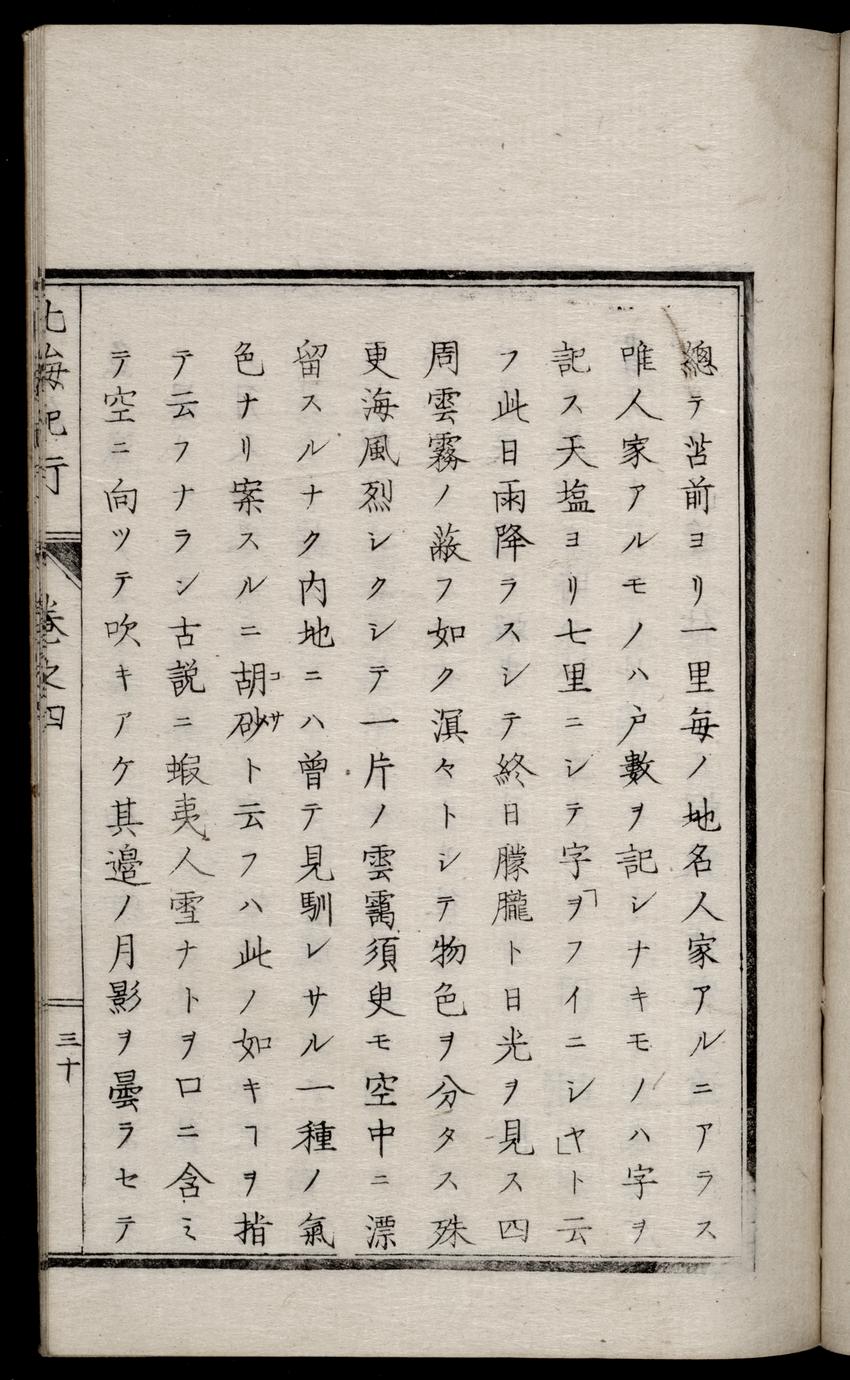 總テ苫前ヨリ一里毎ノ地名人家アルニアラス
唯人家アルモノハ戸數ヲ記シナキモノハ字ヲ
記ス天塩ヨリ七里ニシテ字ヲ「ヲフイニシヤ」ト云
フ此日雨降ラスシテ終日朦朧ト日光ヲ見ス四
周雲霧ノ蔽フ如ク溟々トシテ物色ヲ分タス殊
更海風烈シクシテ一片ノ雲靄須臾モ空中ニ漂
留スルナク内地ニハ曾テ見馴レサル一種ノ氣
色ナリ案スルニ胡砂ト云フハ此ノ如キヿヲ指
コサ
テ云フナラン古説ニ蝦夷人雪ナトヲ口ニ含ミ
テ空ニ向ツテ吹キアケ其邉ノ月影ヲ曇ラセテ
北海紀行
巻之四
三十